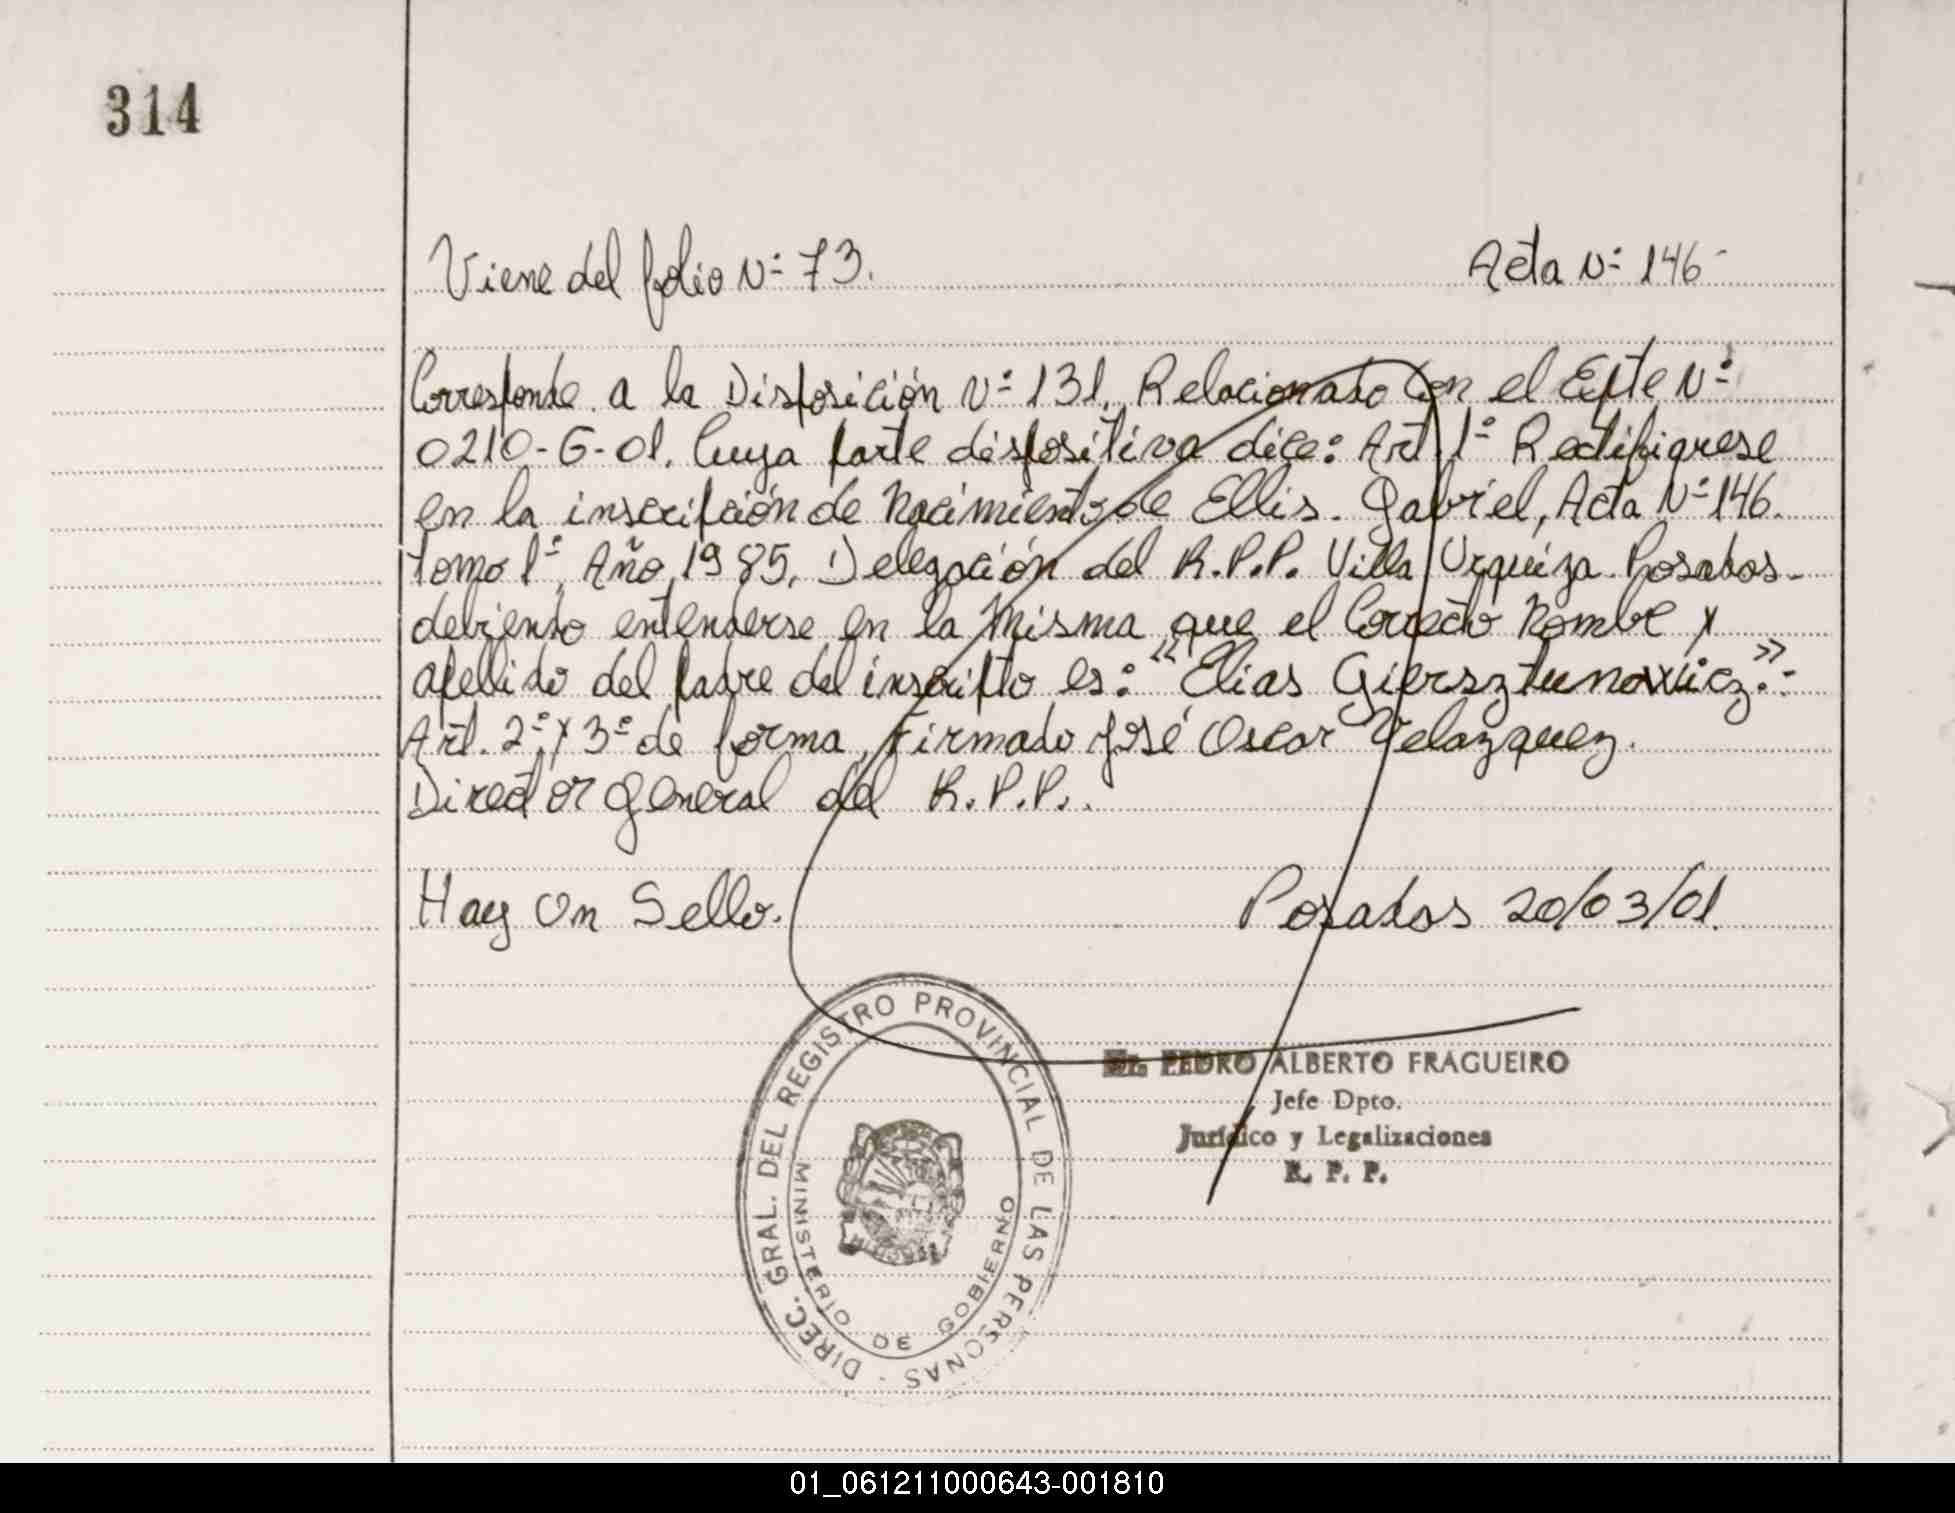 314
Viene del folio Nº 73. Acta Nº 146-
Corresponde a la Disposición Nº 131. Relacionado con el Expte Nº
0210-G-01. Cuya parte dispositiva dice: Art. 1º Rectifiqrese
en la inscripción de Nacimiento de Ellis. Gabriel, Acta Nº 146.
tomo 1º, Año 1985, Delegación del R.P.P. Villa Urquiza Posadas-
debiendo entenderse en la misma que el Correcto Nombre y
apellido del padre del inscripto es: "Elias Giersztunowicz".-
Art. 2º y 3º de forma, Firmado José Oscar Velazquez.
Director General del R.P.P..
Hay Un Sello. Posadas 20/03/01.
DIREC. GRAL. DEL REGISTRO PROVINCIAL DE LAS PERSONAS -
MINISTERIO DE GOBIERNO
Dr. PEDRO ALBERTO FRAGUEIRO
Jefe Dpto.
Jurídico y Legalizaciones
R. P. P.
01_061211000643-001810